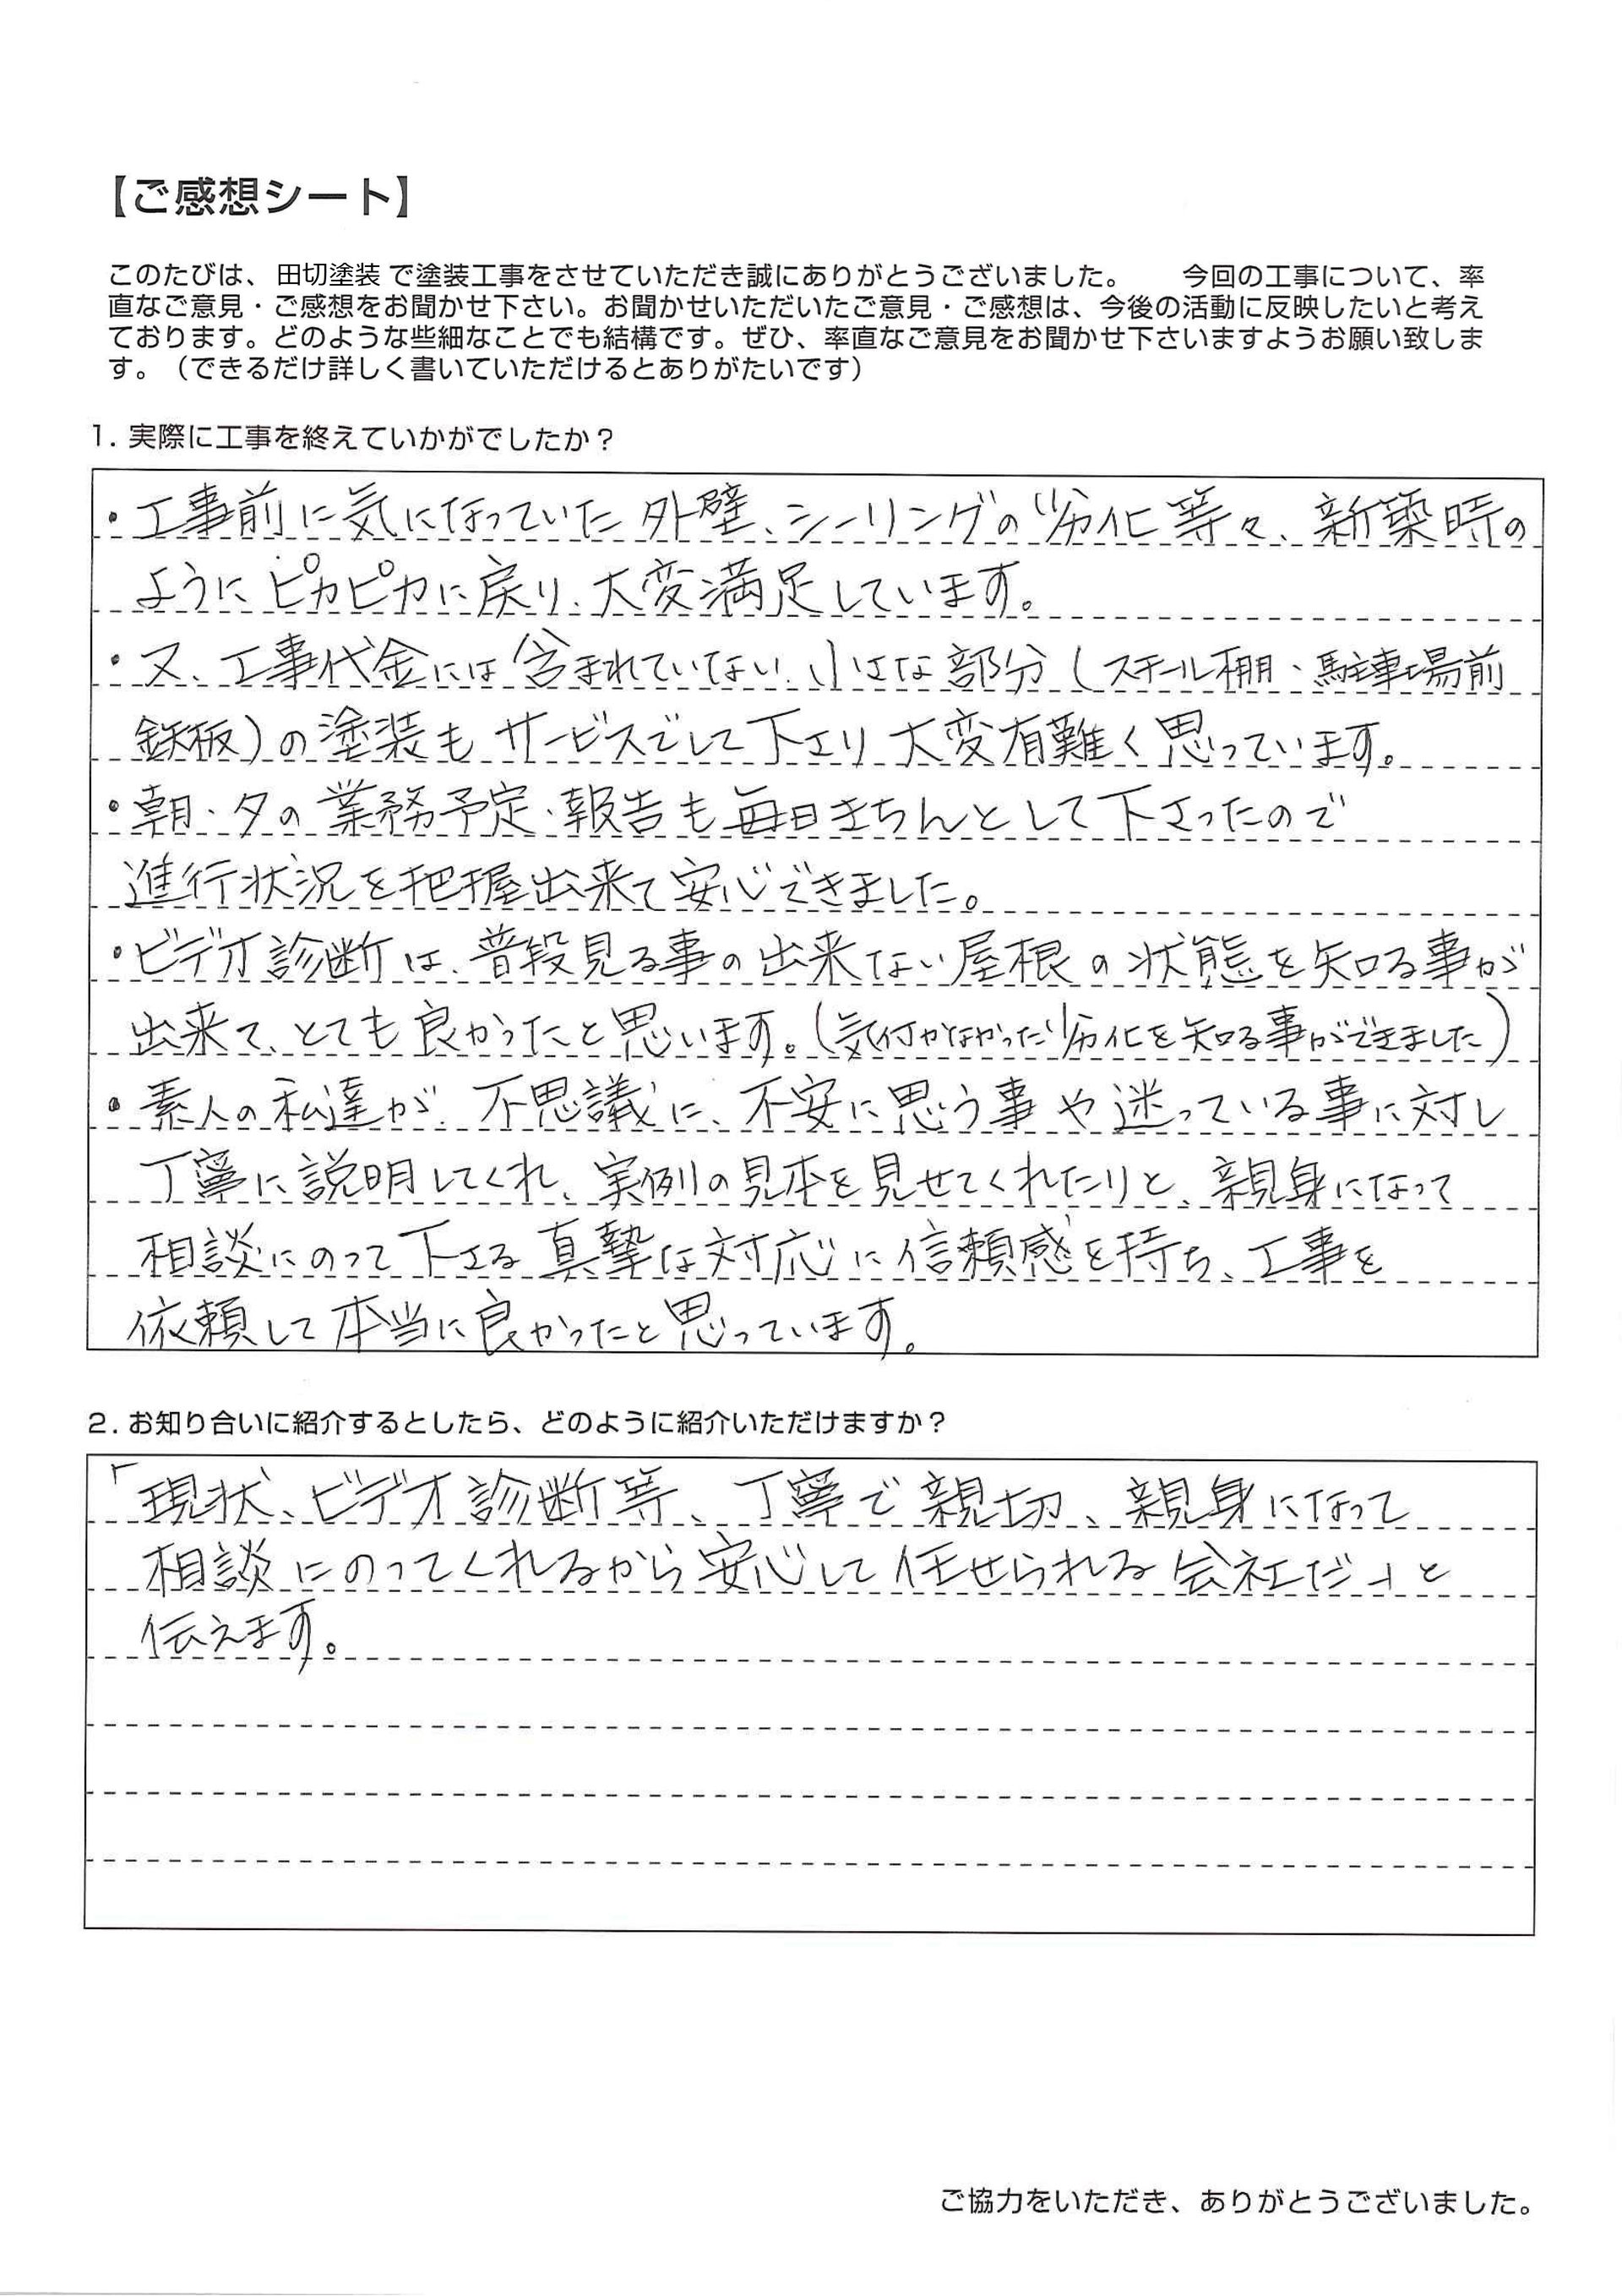 【ご感想シート】
このたびは、田切塗装で塗装工事をさせていただき誠にありがとうございました。　　今回の工事について、率
直なご意見・ご感想をお聞かせ下さい。お聞かせいただいたご意見・ご感想は、今後の活動に反映したいと考え
ております。どのような些細なことでも結構です。ぜひ、率直なご意見をお聞かせ下さいますようお願い致しま
す。（できるだけ詳しく書いていただけるとありがたいです）
1. 実際に工事を終えていかがでしたか？
・工事前に気になっていた外壁、シーリングの劣化等々、新築時の
ようにピカピカに戻り、大変満足しています。
・又、工事代金には含まれていない、小さな部分（スチール棚・駐車場前
鉄板）の塗装もサービスでして下さり大変有難く思っています。
・朝・夕の業務予定・報告も毎日きちんとして下さったので
進行状況を把握出来て安心できました。
・ビデオ診断は、普段見る事の出来ない屋根の状態を知る事が
出来て、とても良かったと思います。（気付かなかった劣化を知る事ができました）
・素人の私達が、不思議に、不安に思う事や迷っている事に対し
丁寧に説明してくれ、実例の見本を見せてくれたりと、親身になって
相談にのって下さる真摯な対応に信頼感を持ち、工事を
依頼して本当に良かったと思っています。
2. お知り合いに紹介するとしたら、どのように紹介いただけますか？
「現状、ビデオ診断等、丁寧で親切、親身になって
相談にのってくれるから安心して任せられる会社だ」と
伝えます。
ご協力をいただき、ありがとうございました。